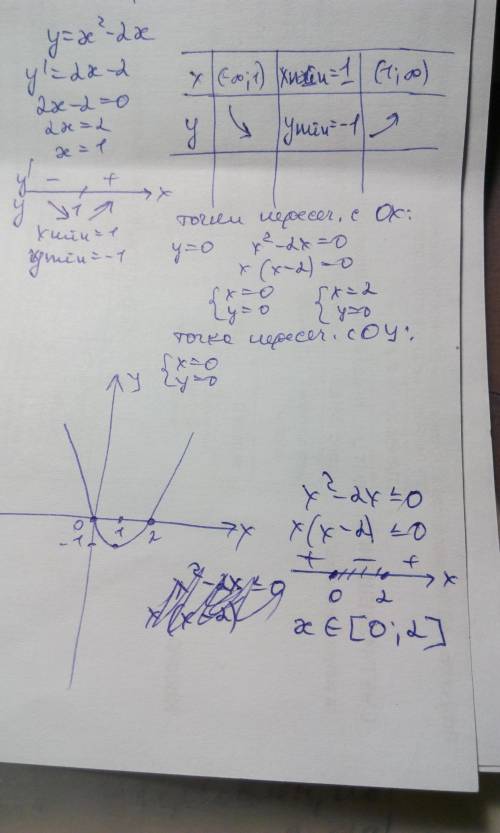 y=x²-2x
y'=2x-2
2x-2=0
2x=2
x=1
y' - +
y 1 x
xmin=1
ymin=-1
x (-∞;1) xmin=1 (1;∞)
y ↘ ymin=-1 ↗
точки пересеч. с OX:
y=0 x²-2x=0
x(x-2)=0
{x=0 {x=2
{y=0 {y=0
точка пересеч. с OY:
{x=0
{y=0
y
0 1 2 x
-1
x²-2x≤0
x(x-2)≤0
+ - +
0 2 x
x∈[0;2]